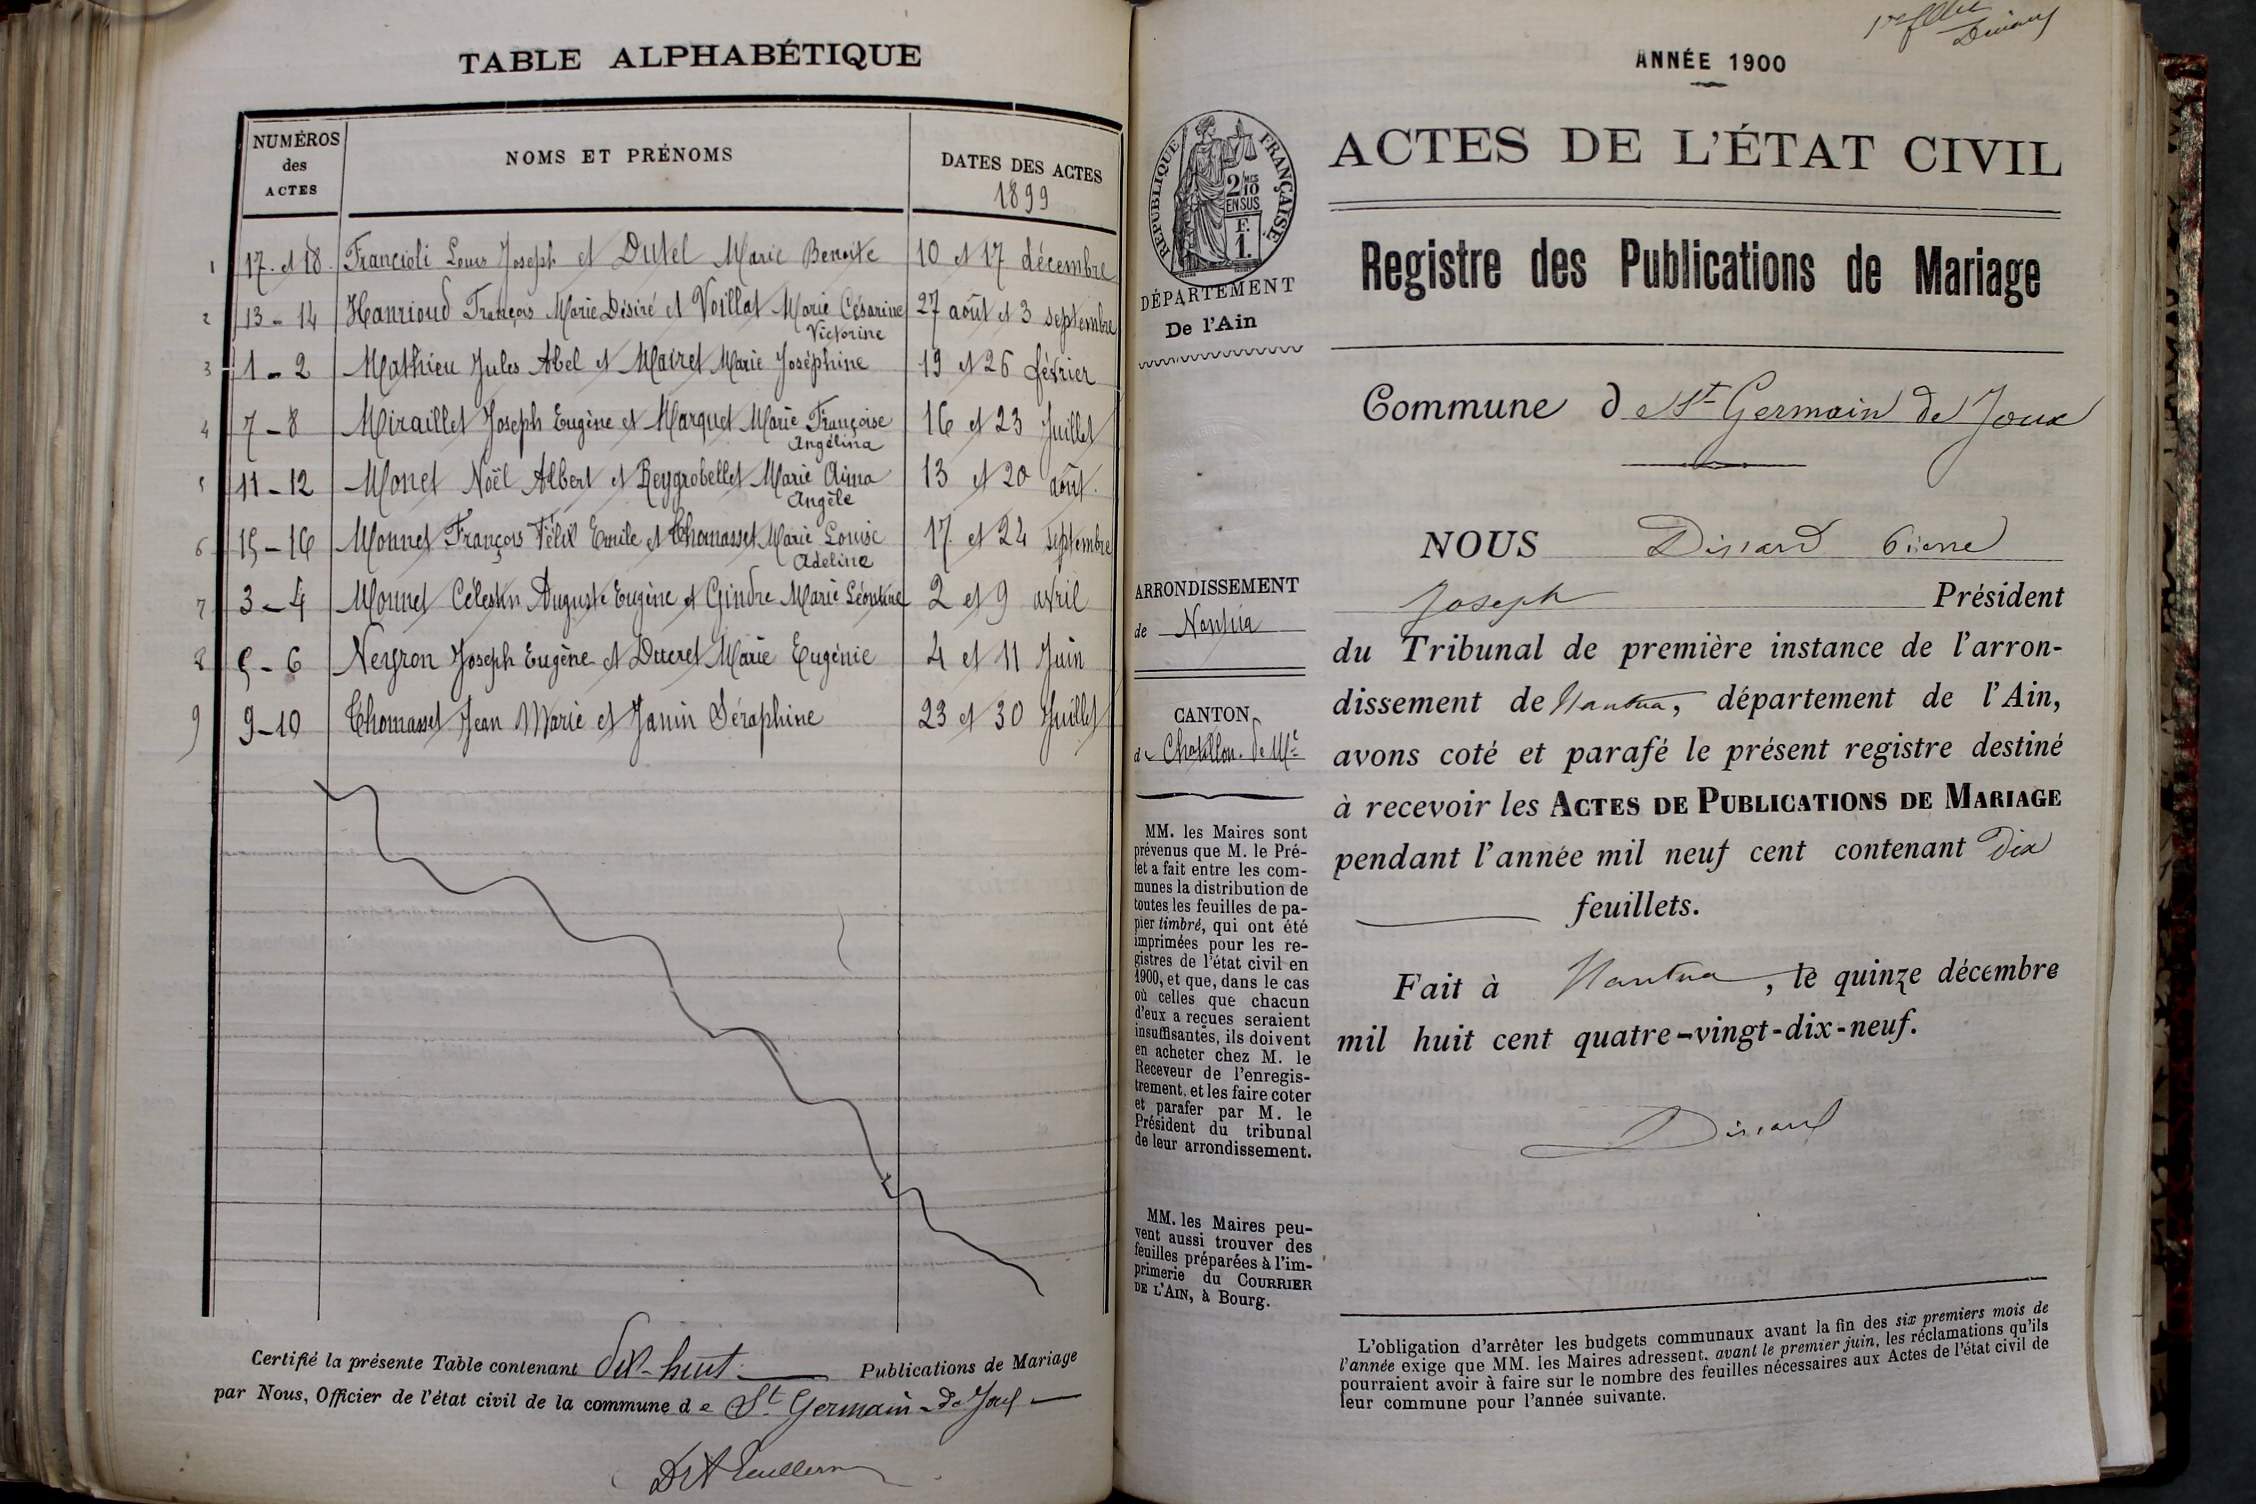 TABLE ALPHABÉTIQUE
NUMÉROS des ACTES
NOMS ET PRÉNOMS
DATES DES ACTES
1899
1 17 et 18 Francioli Louis Joseph et Dutel Marie Benoite 10 et 17 décembre
2 13 - 14 Hanrioud François Marie Désiré et Voillat Marie Césarine 27 août et 3 septembre
Victorine
3 1 - 2 Mathieu Jules Abel et Mairet Marie Joséphine 19 et 26 février
4 7 - 8 Miraillet Joseph Eugène et Marquet Marie Françoise 16 et 23 Juillet
Angélina
5 11 - 12 Monet Noël Albert et Reygrobellet Marie Aima 13 et 20 août.
Angèle
6 15 - 16 Monnet François Félix Emile et Thomasset Marie Louise 17 et 24 septembre
Adeline
7 3 - 4 Monnet Célestin Auguste Eugène et Gindre Marie Léontine 2 et 9 avril
8 5 - 6 Neyron Joseph Eugène et Ducret Marie Eugénie 4 et 11 Juin
9 9 - 10 Thomasset Jean Marie et Janin Séraphine 23 et 30 Juillet
Certifié la présente Table contenant dix-huit Publications de Mariage
par Nous, Officier de l'état civil de la commune de St Germain de Joux
ANNÉE 1900
RÉPUBLIQUE FRANÇAISE
2/10 MES
EN SUS
F.
1.
DÉPARTEMENT
De l'Ain
ARRONDISSEMENT
de Nantua
CANTON
de Chatillon de Mlle
MM. les Maires sont
prévenus que M. le Pré-
fet a fait entre les com-
munes la distribution de
toutes les feuilles de pa-
pier timbré, qui ont été
imprimées pour les re-
gistres de l'état civil en
1900, et que, dans le cas
où celles que chacun
d'eux a reçues seraient
insuffisantes, ils doivent
en acheter chez M. le
Receveur de l'enregis-
trement, et les faire coter
et parafer par M. le
Président du tribunal
de leur arrondissement.
MM. les Maires peu-
vent aussi trouver des
feuilles préparées à l'im-
primerie du COURRIER
DE L'AIN, à Bourg.
ACTES DE L'ÉTAT CIVIL
Registre des Publications de Mariage
Commune de St Germain de Joux
NOUS Dissard Pierre
Joseph Président
du Tribunal de première instance de l'arron-
dissement de Nantua, département de l'Ain,
avons coté et parafé le présent registre destiné
à recevoir les ACTES DE PUBLICATIONS DE MARIAGE
pendant l'année mil neuf cent contenant dix
feuillets.
Fait à Nantua, le quinze décembre
mil huit cent quatre-vingt-dix-neuf.
Dissard
L'obligation d'arrêter les budgets communaux avant la fin des six premiers mois de
l'année exige que MM. les Maires adressent, avant le premier juin, les réclamations qu'ils
pourraient avoir à faire sur le nombre des feuilles nécessaires aux Actes de l'état civil de
leur commune pour l'année suivante.